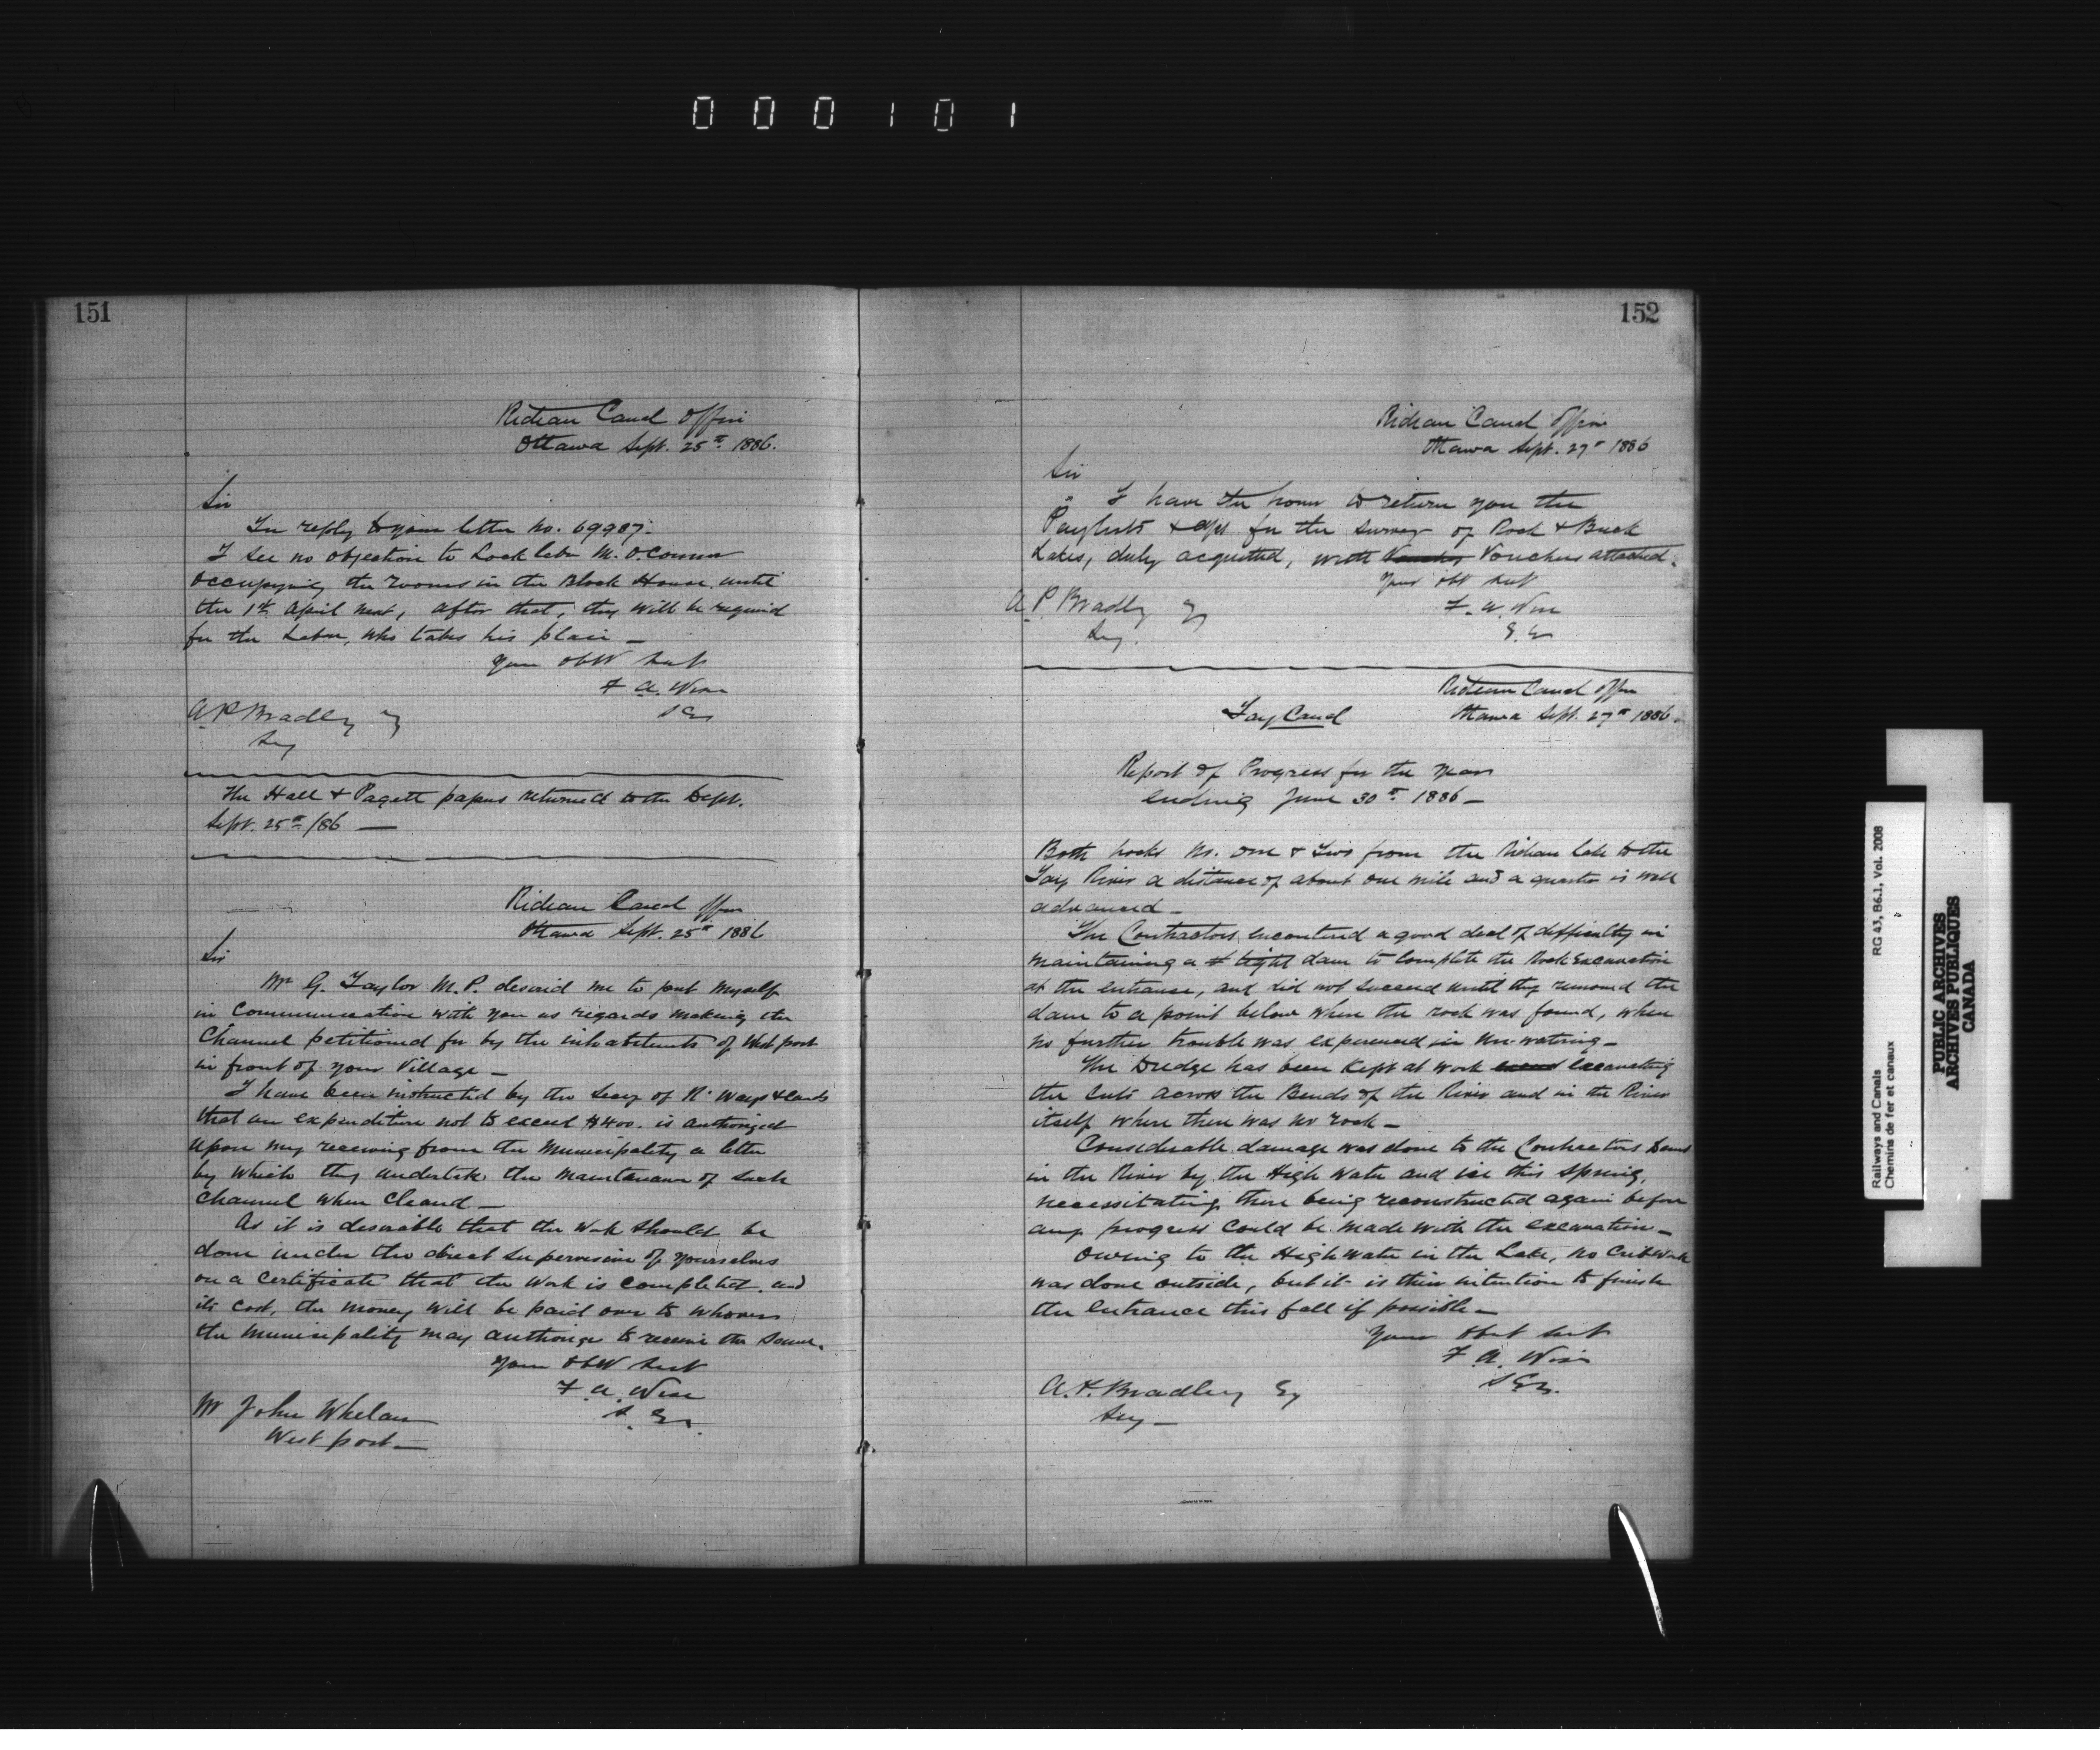 000101
151
Rideau Canal Office
Ottawa Sept. 25th 1886.
Sir
In reply to your letter No. 69987.
I see no objection to Lock labr M. O.Connor
occupying the rooms in the Block House until
the 1st April next, after that, they will be required
for the Labr, who takes his place —
Your obdt Sert
F. A. Wise
S. En
A. P. Bradley Esq
Secy
The Hall & Pagett papers returned to the Dept.
Sept. 25th /86 —
Rideau Canal Office
Ottawa Sept. 25th 1886
Sir
Mr G. Taylor M.P. desired me to put myself
in Communication with you as regards making the
Channel petitioned for by the inhabitants of Westport
in front of your Village —
I have been instructed by the Secy of R. Ways & Canls
that an expenditure not to exceed $400. is authorized
upon my receiving from the Municipality a letter
by which they undertake the maintenance of such
Channel when Cleared —
As it is desirable that the Work should be
done under the direct supervision of yourselves
on a Certificate that the Work is completed and
its cost, the money will be paid over to whoever
the Municipality may authorize to receive the same.
Your Obdt Sert
F. A. Wise
S. En.
Mr John Whelan
West port —
152
Rideau Canal Office
Ottawa Sept. 27th 1886
Sir
I have the honor to return you the
Paylists & a/cs for the survey of Rock & Buck
Lakes, duly acquitted, with Vouchers attached.
Your obt Sert
F. A. Wise
S. En
A. P. Bradley Esq
Secy.
Rideau Canal Office
Tay Canal Ottawa Sept. 27th 1886.
Report of Progress for the year
ending June 30th 1886 —
Both Locks No. One & Two from the Rideau Lake to the
Tay River a distance of about one mile and a quarter is well
advanced —
The Contractors encountered a good deal of difficulty in
maintaining a tight dam to complete the Rock Excavation
at the entrance, and did not succeed until they removed the
dam to a point below where the rock was found, when
no further trouble was experienced in Un-watering —
The Dredge has been kept at work excavating
the cuts across the Bends of the River and in the River
itself where there was no rock —
Considerable damage was done to the Contractors Dams
in the River by the High Water and ice this Spring,
necessitating there being reconstructed again before
any progress could be made with the excavation —
Owing to the High Water in the Lake, no Cribwork
was done outside, but it is their intention to finish
the entrance this fall if possible —
Your Obdt Sert
F. A. Wise
S. En.
A. P. Bradley Esq
Secy —
Railways and Canals RG 43, B6.1, Vol. 2008
Chemins de fer et canaux
PUBLIC ARCHIVES
ARCHIVES PUBLIQUES
CANADA